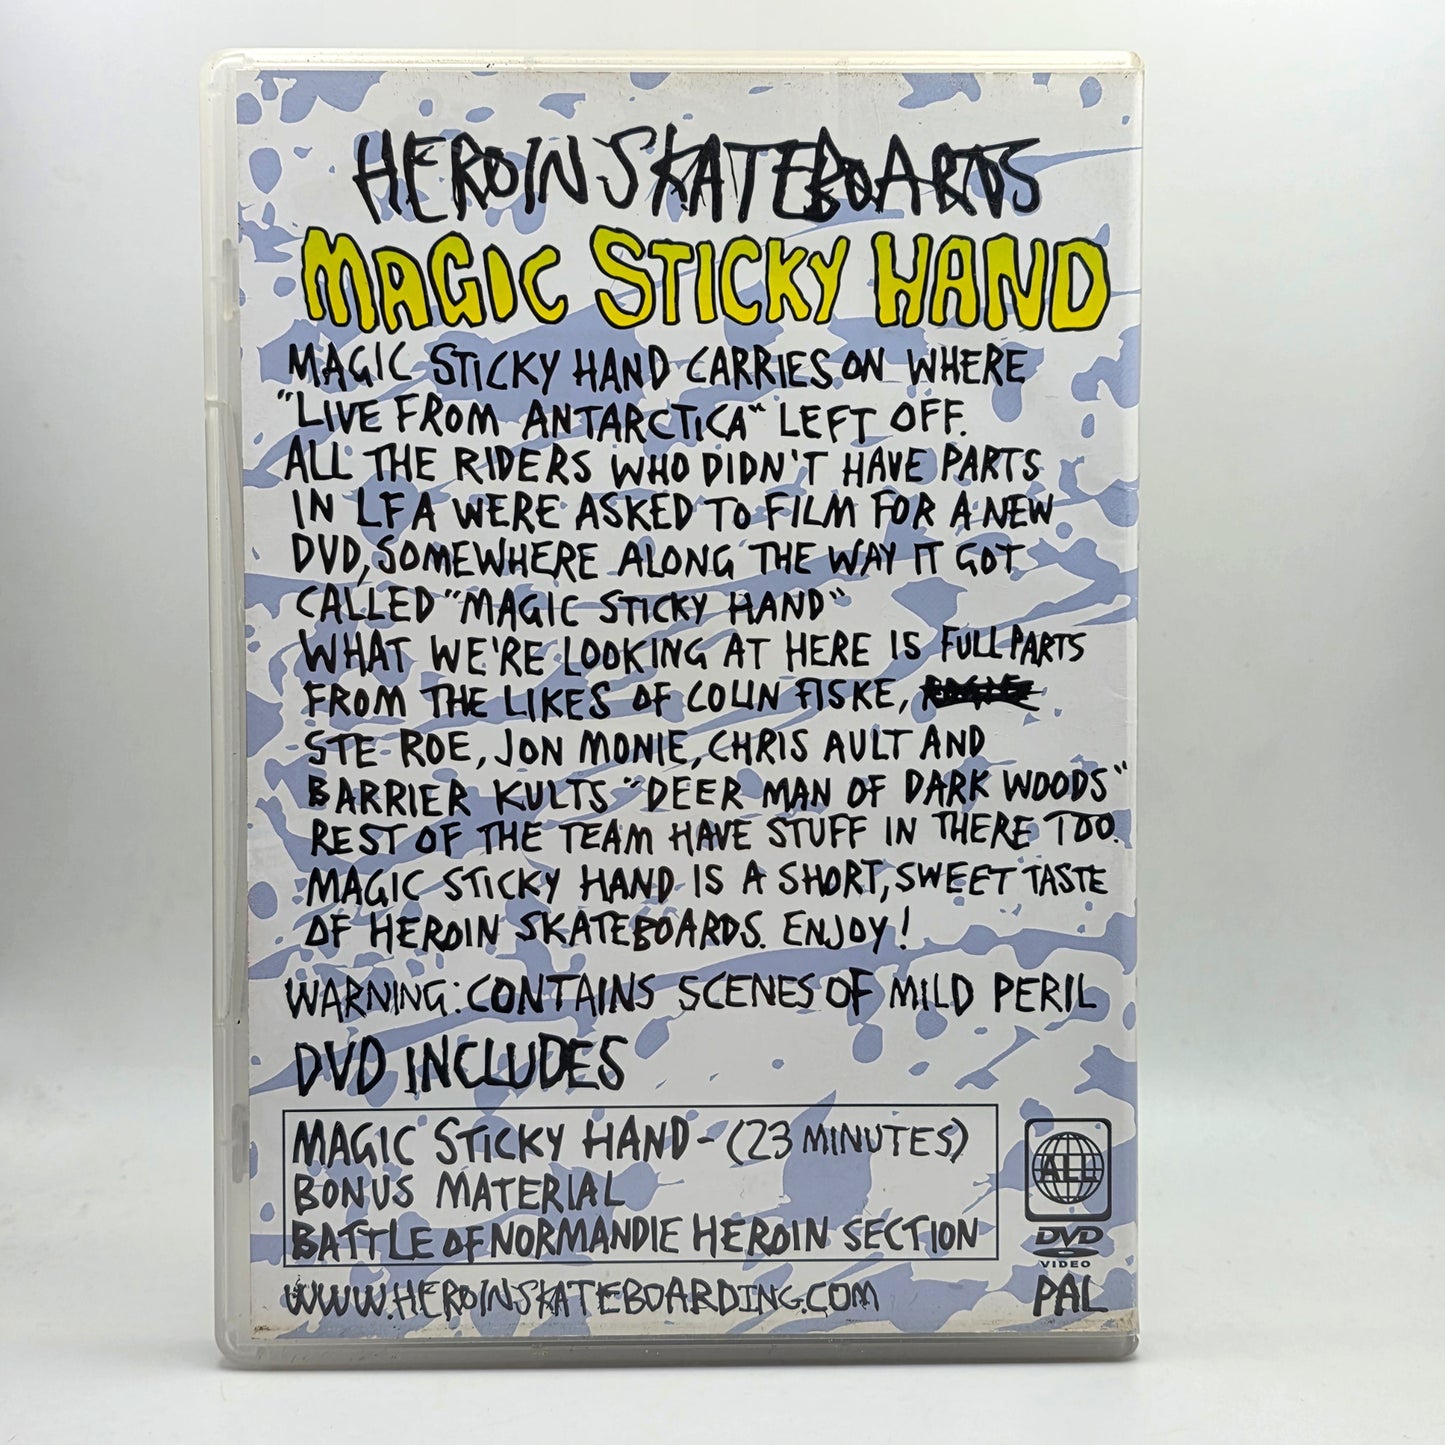 HEROIN SKATEBOARDS
MAGIC STICKY HAND
MAGIC STICKY HAND CARRIES ON WHERE
"LIVE FROM ANTARCTICA" LEFT OFF.
ALL THE RIDERS WHO DIDN'T HAVE PARTS
IN LFA WERE ASKED TO FILM FOR A NEW
DVD, SOMEWHERE ALONG THE WAY IT GOT
CALLED "MAGIC STICKY HAND"
WHAT WE'RE LOOKING AT HERE IS FULL PARTS
FROM THE LIKES OF COLIN FISKE,
STE ROE, JON MONIE, CHRIS AULT AND
BARRIER KULTS "DEER MAN OF DARK WOODS"
REST OF THE TEAM HAVE STUFF IN THERE TOO.
MAGIC STICKY HAND IS A SHORT, SWEET TASTE
OF HEROIN SKATEBOARDS. ENJOY!
WARNING: CONTAINS SCENES OF MILD PERIL
DVD INCLUDES
MAGIC STICKY HAND - (23 MINUTES)
BONUS MATERIAL
BATTLE OF NORMANDIE HEROIN SECTION
ALL
DVD
VIDEO
WWW.HEROINSKATEBOARDING.COM
PAL